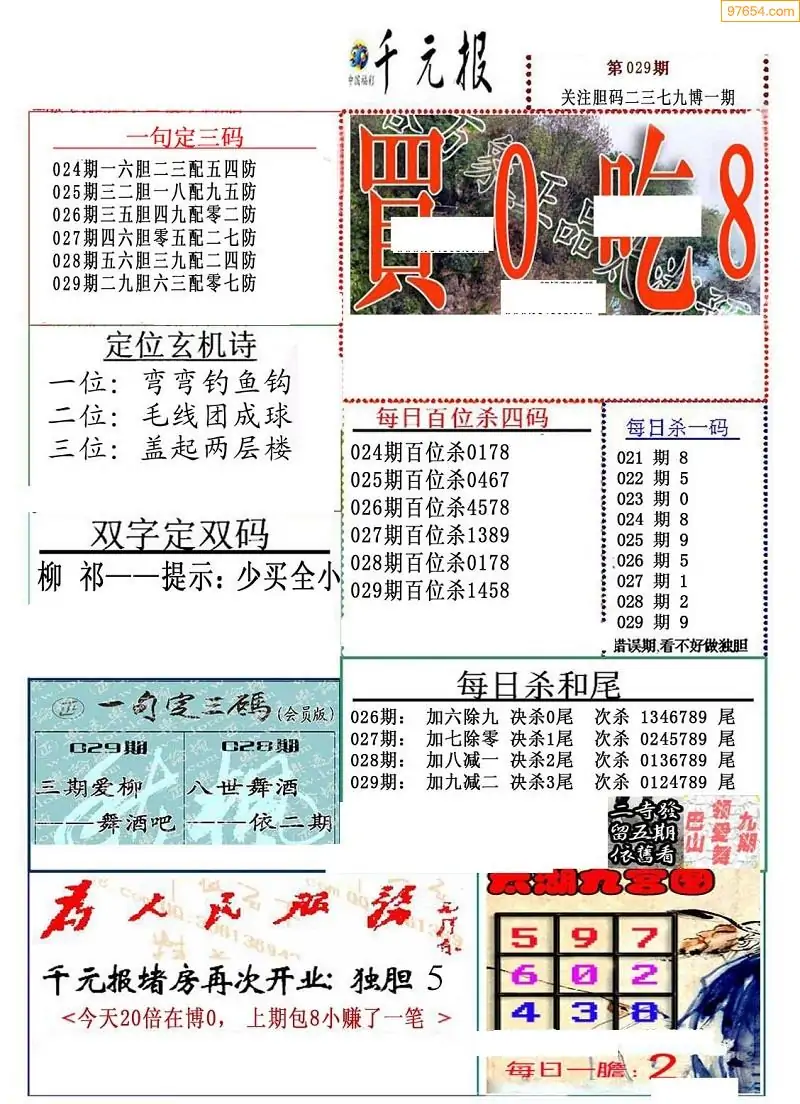 97654.com
中国福彩
千元报
第029期
关注胆码二三七九博一期
一句定三码
024期一六胆二三配五四防
025期三二胆一八配九五防
026期三五胆四九配零二防
027期四六胆零五配二七防
028期五六胆三九配二四防
029期二九胆六三配零七防
買0吃8
定位玄机诗
一位：弯弯钓鱼钩
二位：毛线团成球
三位：盖起两层楼
每日百位杀四码
024期百位杀0178
025期百位杀0467
026期百位杀4578
027期百位杀1389
028期百位杀0178
029期百位杀1458
每日杀一码
021 期 8
022 期 5
023 期 0
024 期 8
025 期 9
026 期 5
027 期 1
028 期 2
029 期 9
错误期.看不好做独胆
双字定双码
柳 祁——提示：少买全小
每日杀和尾
026期： 加六除九 决杀0尾 次杀 1346789 尾
027期： 加七除零 决杀1尾 次杀 0245789 尾
028期： 加八减一 决杀2尾 次杀 0136789 尾
029期： 加九减二 决杀3尾 次杀 0124789 尾
一句定三碼(会员版)
029期 028期
三期爱柳 八世舞酒
——舞酒吧 ——依二期
三寺發
留五期
依舊看
九期
领爱舞
巴山
为人民服务
千元报堵房再次开业：独胆 5
<今天20倍在博0， 上期包8小赚了一笔 >
太湖九宫图
5 9 7
6 0 2
4 3 8
每日一膽：2